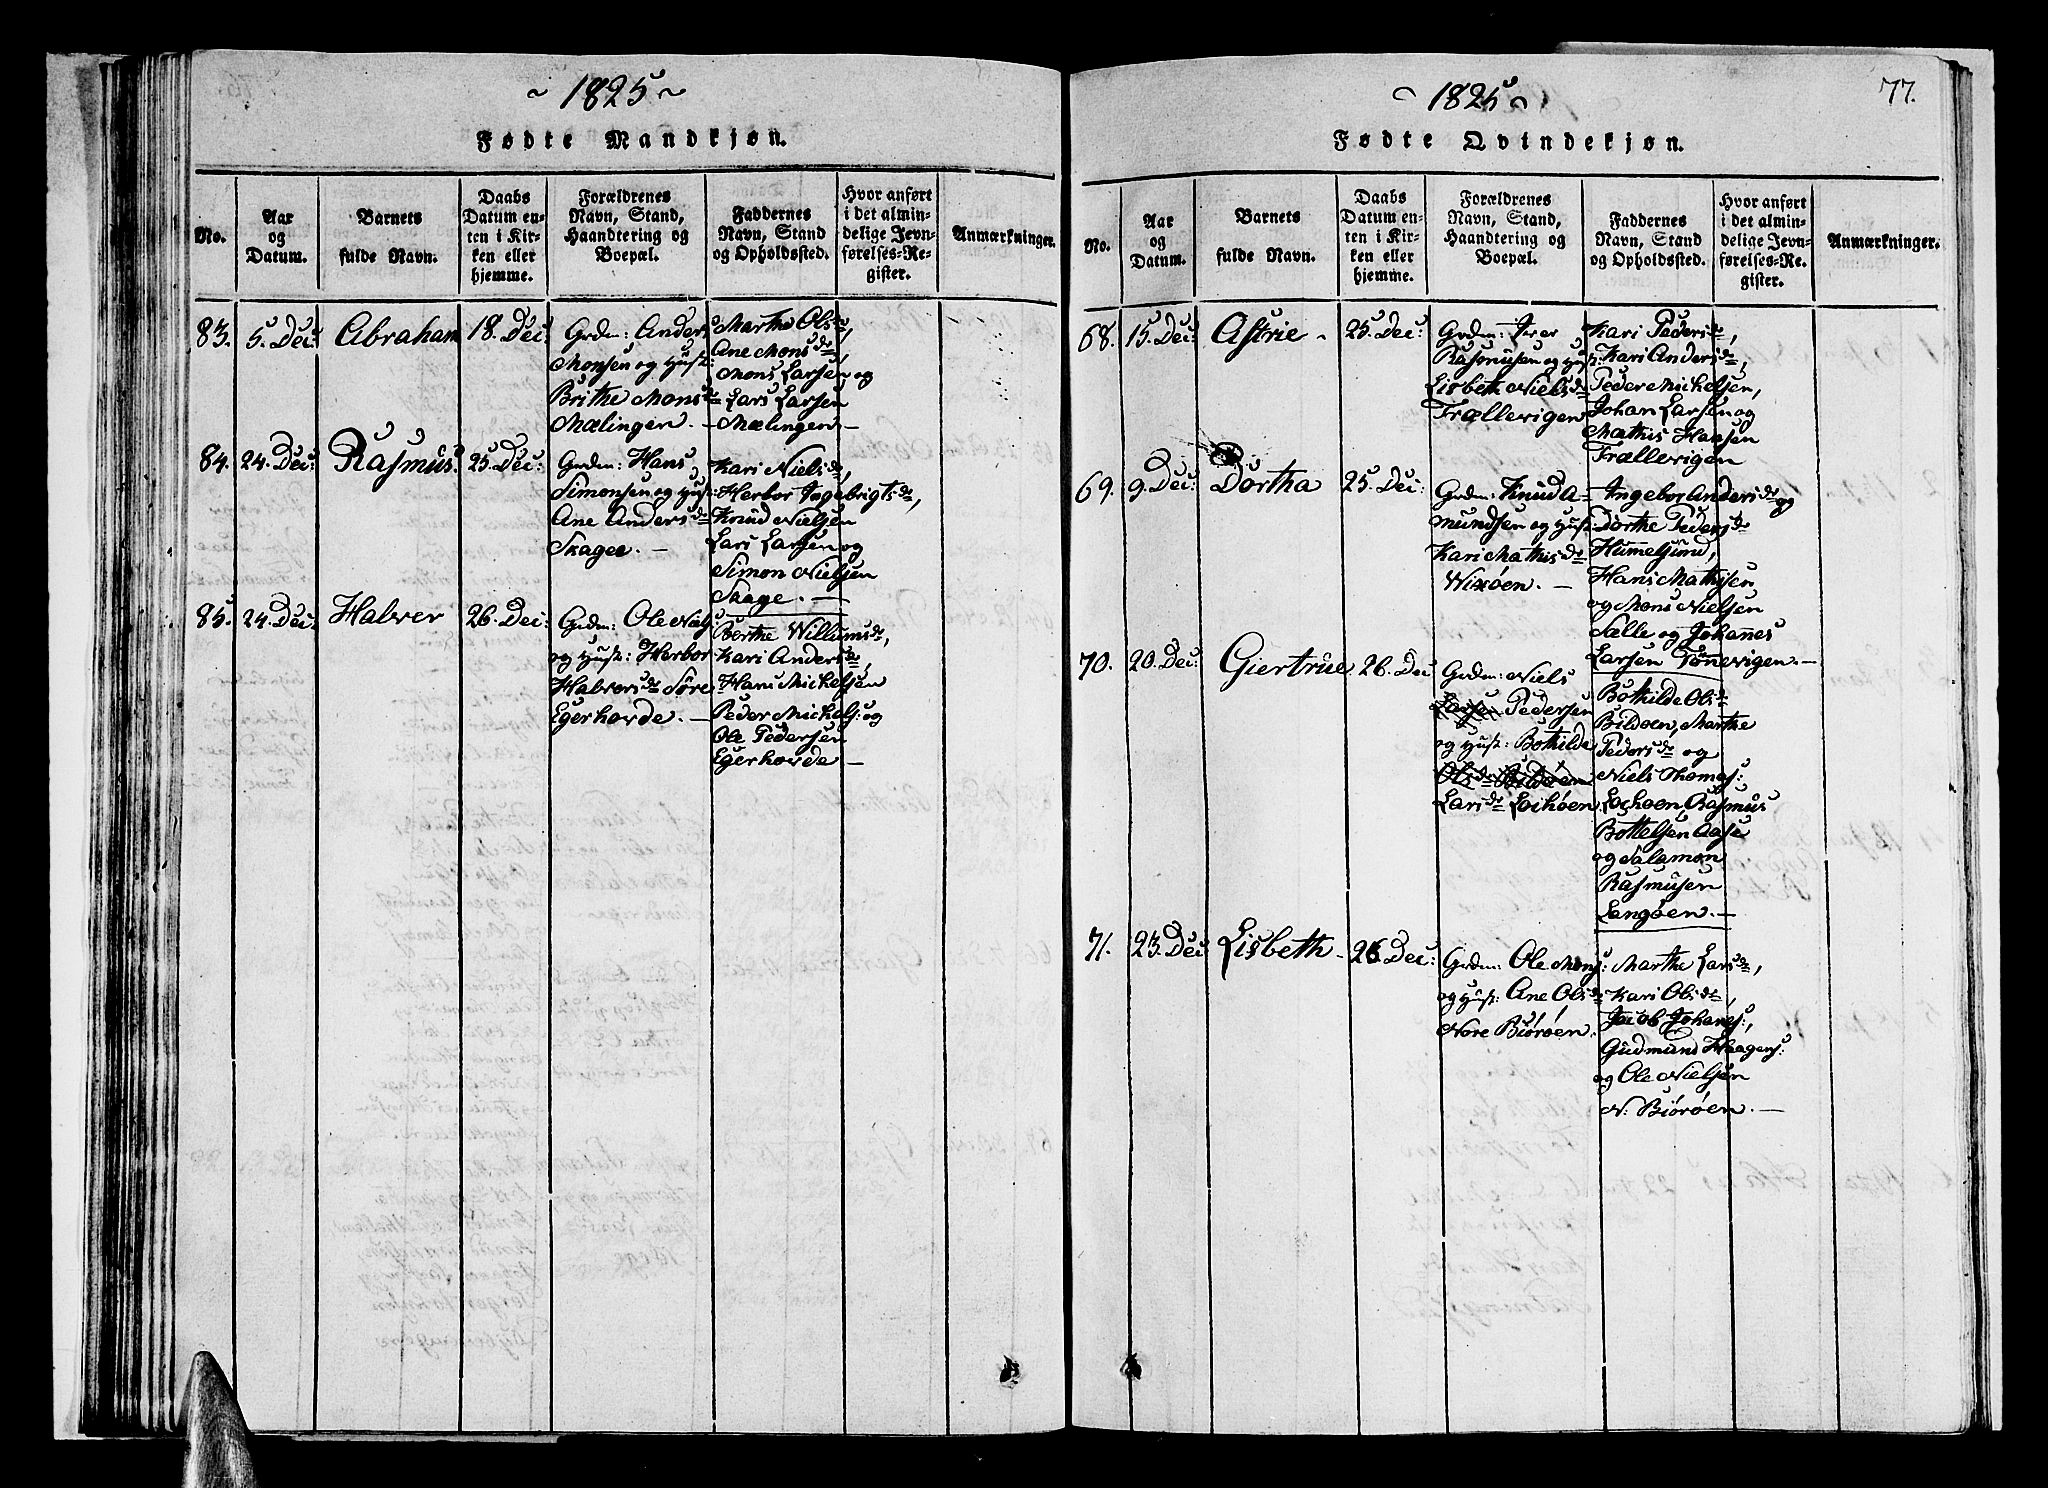 ~ 1825 ~
Fødte Mandkjøn.
No.
Aar
og
Datum.
Barnets
fulde Navn.
Daabs
Datum en-
ten i Kir-
ken eller
hjemme.
Forældrenes
Navn, Stand,
Haandtering og
Boepæl.
Faddernes
Navn, Stand
og Opholdssted.
Hvor anført
i det almin-
delige Jevn-
førelses-Re-
gister.
Anmærkninger.
83. 5. Dec: Abraham 18. Dec:
Grdm: Anders
Monsen og Hust:
Brithe Monsdr
Mælingen. —
Marthe Olsdr,
Ane Monsdr,
Mons Larsen og
Lars Larsen
Mælingen —
84. 24. Dec: Rasmus. 25. Dec:
Grdm: Hans
Simonsen og Hust:
Ane Andersdr
Skage. —
Kari Nielsdr,
Herbor Ingebrigtsdr,
Knud Nielsen
Lars Larsen og
Simon Nielsen
Skage. —
85. 24. Dec: Halver 26. Dec:
Grdm: Ole Niels:
og Hust: Herbor
Halversdr Søre
Egerhovde. —
Berthe Willumsdr,
Kari Andersdr,
Hans Mickelsen
Peder Mickels: og
Ole Pedersen
Egerhovde —
~ 1825 ~
77.
Fødte Qvindekjøn.
No.
Aar
og
Datum.
Barnets
fulde Navn.
Daabs
Datum en-
ten i Kir-
ken eller
hjemme.
Forældrenes
Navn, Stand,
Haandtering og
Boepæl.
Faddernes
Navn, Stand
og Opholdssted.
Hvor anført
i det almin-
delige Jevn-
førelses-Re-
gister.
Anmærkninger.
68. 15. Dec: Astrie - 25. Dec:
Grdm: Iver
Rasmusen og Hust:
Lisbeth Nielsdr
Trællevigen
Kari Pedersdr,
Kari Andersdr,
Peder Mickelsen,
Johan Larsen og
Mathis Hansen
Trællevigen
69. 9. Dec: Dortha 25. Dec:
Grdm: Knud A-
mundsen og Hust:
Kari Mathisdr
Wixøen. —
Ingebor Andersdr og
Dorthe Pedersdr
Hummelsund,
Hans Mathisen
og Mons Nielsen
Sælle og Johannes
Larsen Tønevigen. —
70. 20. Dec: Giertrue 26. Dec
Grdm: Niels
Larsen Pedersen
og Hust: Bothilde
Olsdr Bildøen
Larsdr Lochøen
Bothilde Olsdr
Bildøen, Marthe
Pedersdr og
Niels Thomes:
Lochøen, Rasmus
Bottelsen Aase
og Salamon
Rasmusen
Langøen. —
71. 23. Dec Lisbeth - 26. Dec:
Grdm: Ole Mons:
og Hust: Ane Olsdr
Nore Biørøen.
Marthe Larsdr,
Kari Olsdr,
Jacob Johanes:,
Gudmund Haagens:
og Ole Nielsen
N: Biørøen. —